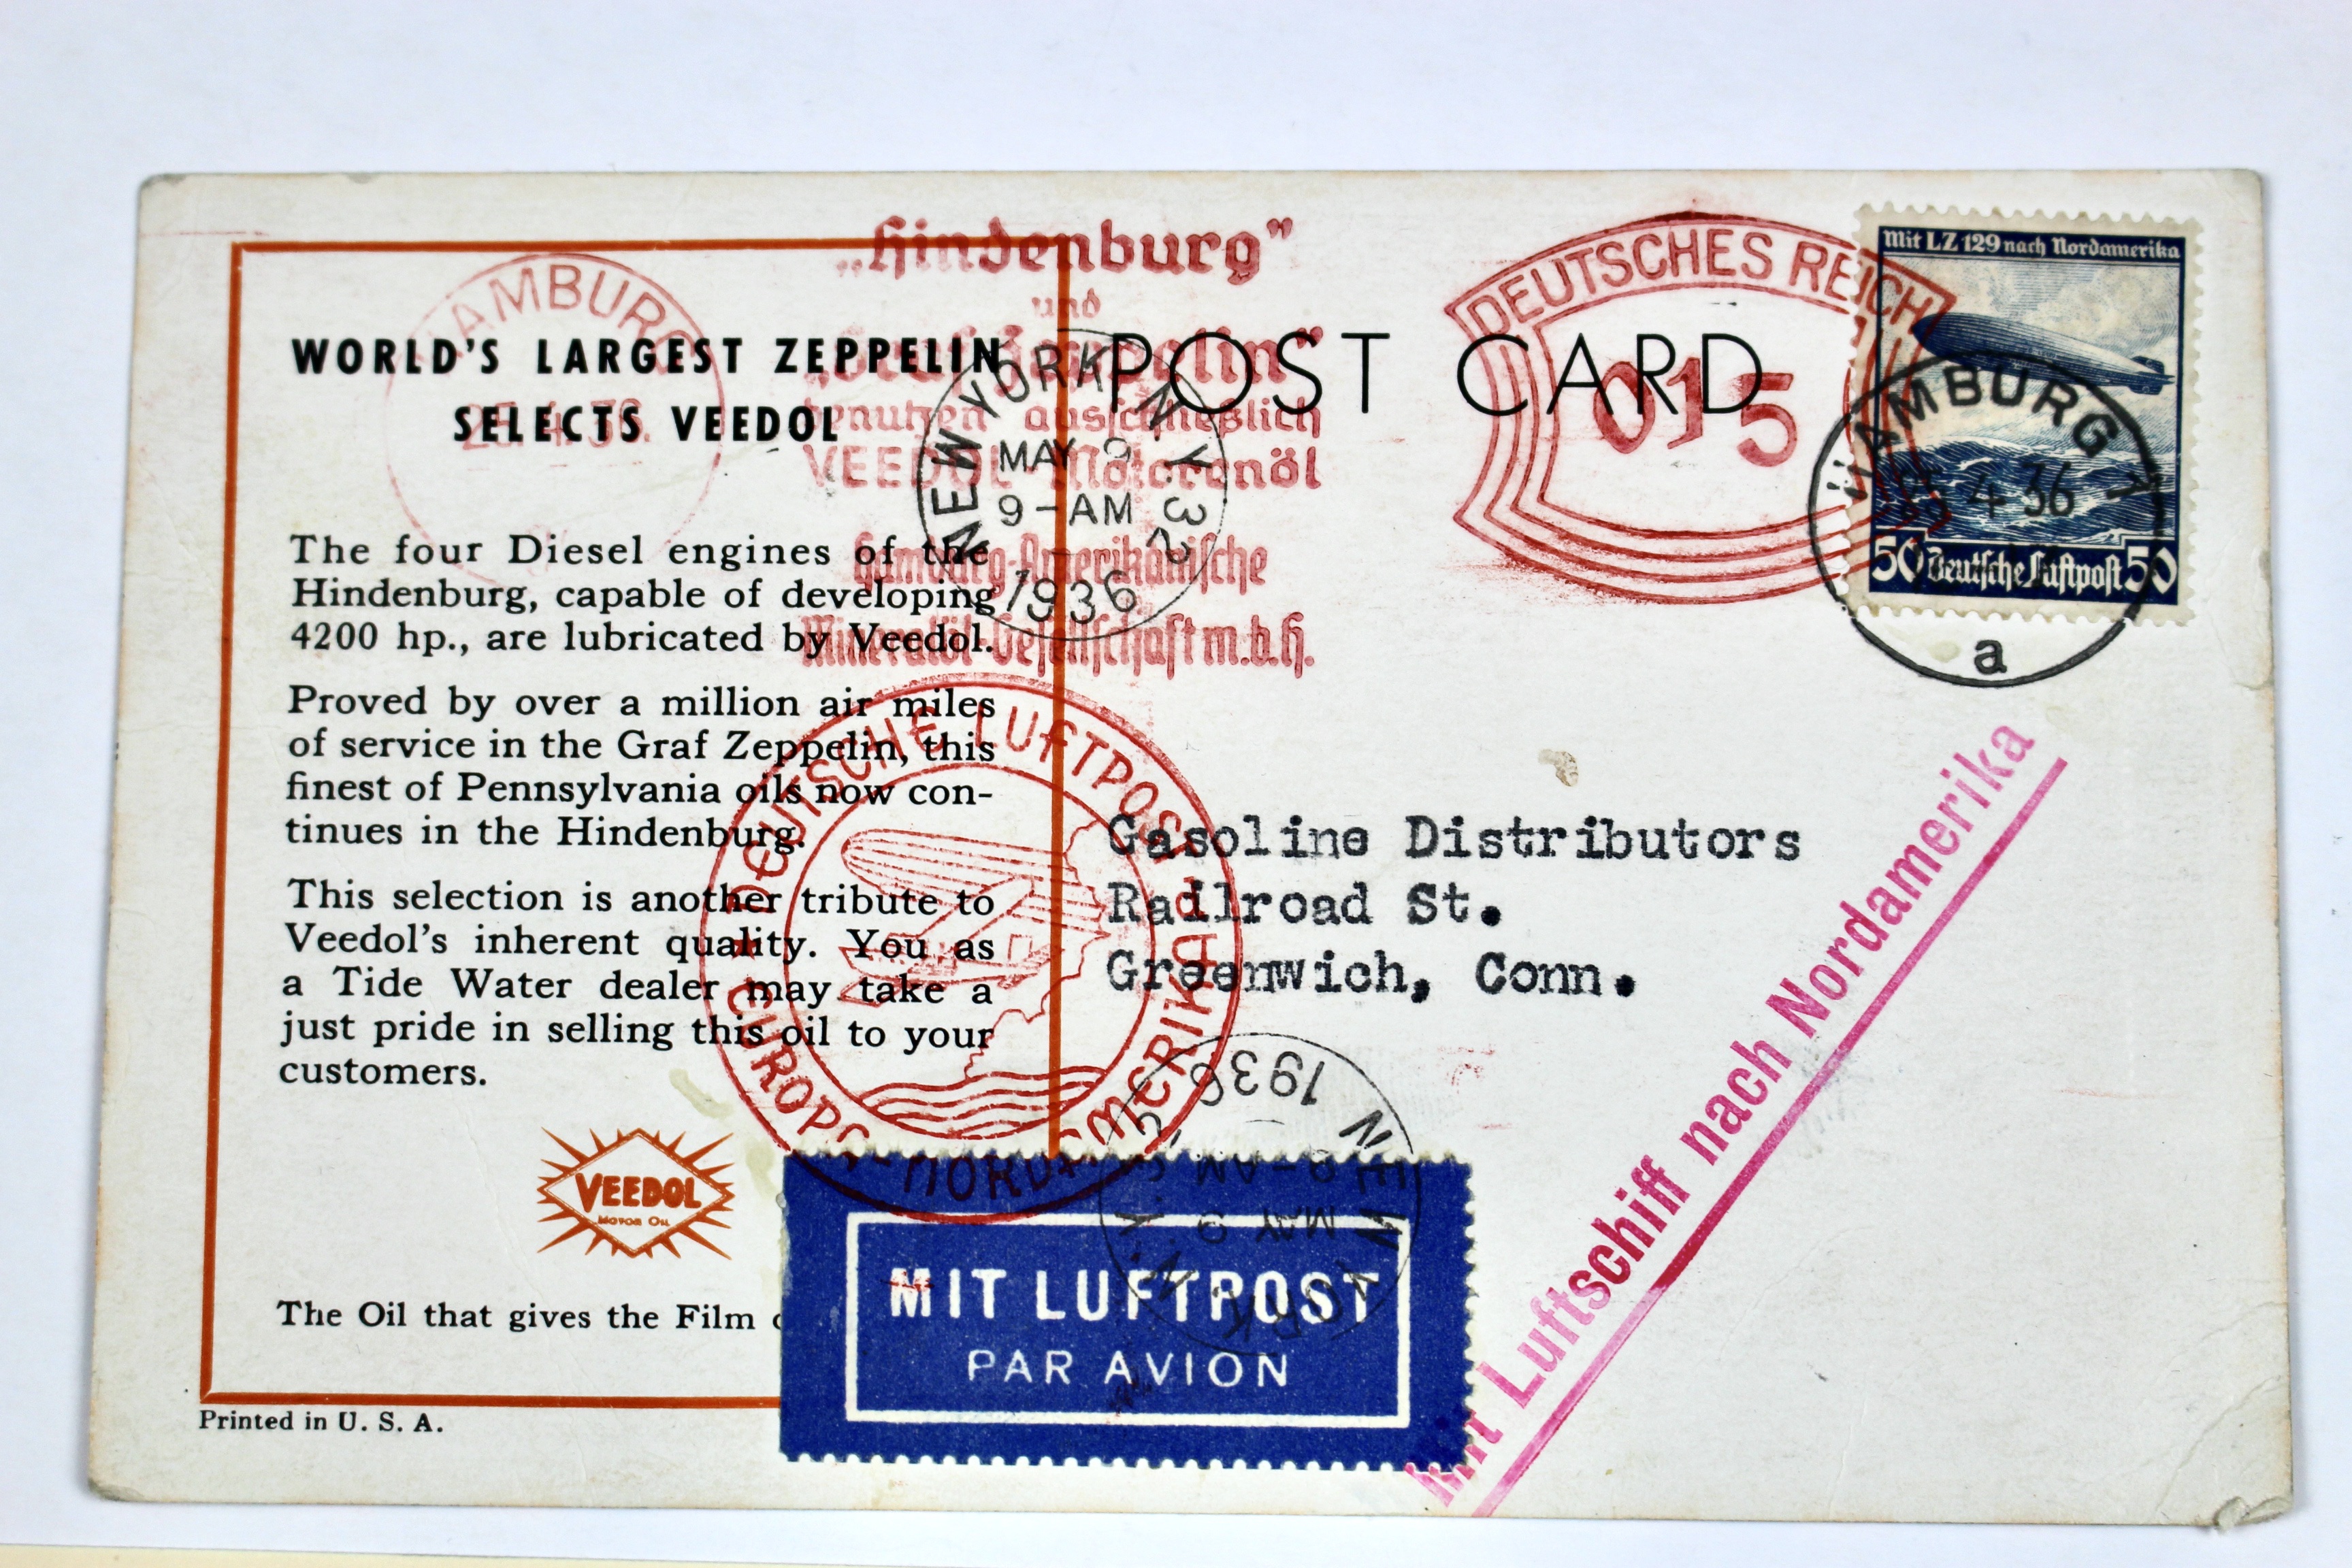 WORLD'S LARGEST ZEPPELIN
SELECTS VEEDOL
The four Diesel engines of the
Hindenburg, capable of developing
4200 hp., are lubricated by Veedol.
Proved by over a million air miles
of service in the Graf Zeppelin, this
finest of Pennsylvania oils now con-
tinues in the Hindenburg.
This selection is another tribute to
Veedol's inherent quality. You as
a Tide Water dealer may take a
just pride in selling this oil to your
customers.
VEEDOL
MOTOR OIL
The Oil that gives the Film
Printed in U. S. A.
HAMBURG
4. 36.
„Hindenburg”
und
„Graf Zeppelin”
benutzen ausschließlich
VEEDOL-Motorenöl
Hamburg-Amerikanische
Mineralöl-Gesellschaft m.b.H.
NEW YORK N.Y. 32
MAY 9
9-AM
1936
POST CARD
DEUTSCHES REICH
015
Mit LZ 129 nach Nordamerika
50 Deutsche Luftpost 50
HAMBURG 1
4 36
a
DEUTSCHE LUFTPOST
EUROPA-NORDAMERIKA
Gasoline Distributors
Railroad St.
Greenwich, Conn.
NEW YORK N.Y.
MAY 9
9-AM
1936
MIT LUFTPOST
PAR AVION
Mit Luftschiff nach Nordamerika